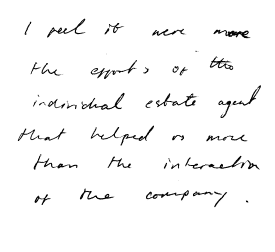 I feel it were more
the efforts of the
individual estate agent
that helped us more
than the interaction
of the company.